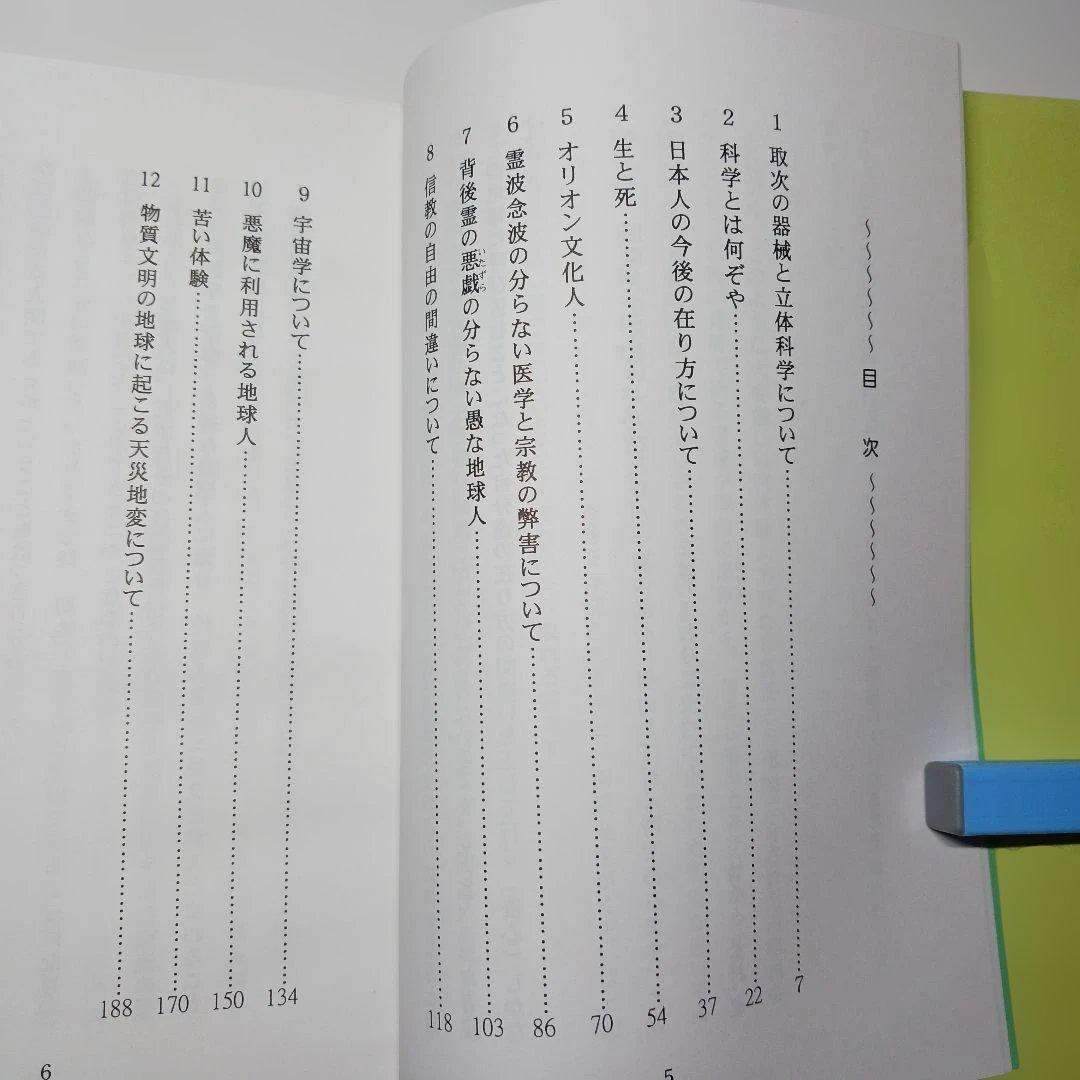 ～～～～～～ 目 次 ～～～～～～
1 取次の器械と立体科学について……………7
2 科学とは何ぞや……………22
3 日本人の今後の在り方について……………37
4 生と死……………54
5 オリオン文化人……………70
6 霊波念波の分らない医学と宗教の弊害について……………86
7 背後霊の悪戯の分らない愚な地球人……………103
いたずら
8 信教の自由の間違いについて……………118
5
9 宇宙学について……………134
10 悪魔に利用される地球人……………150
11 苦い体験……………170
12 物質文明の地球に起こる天災地変について……………188
6